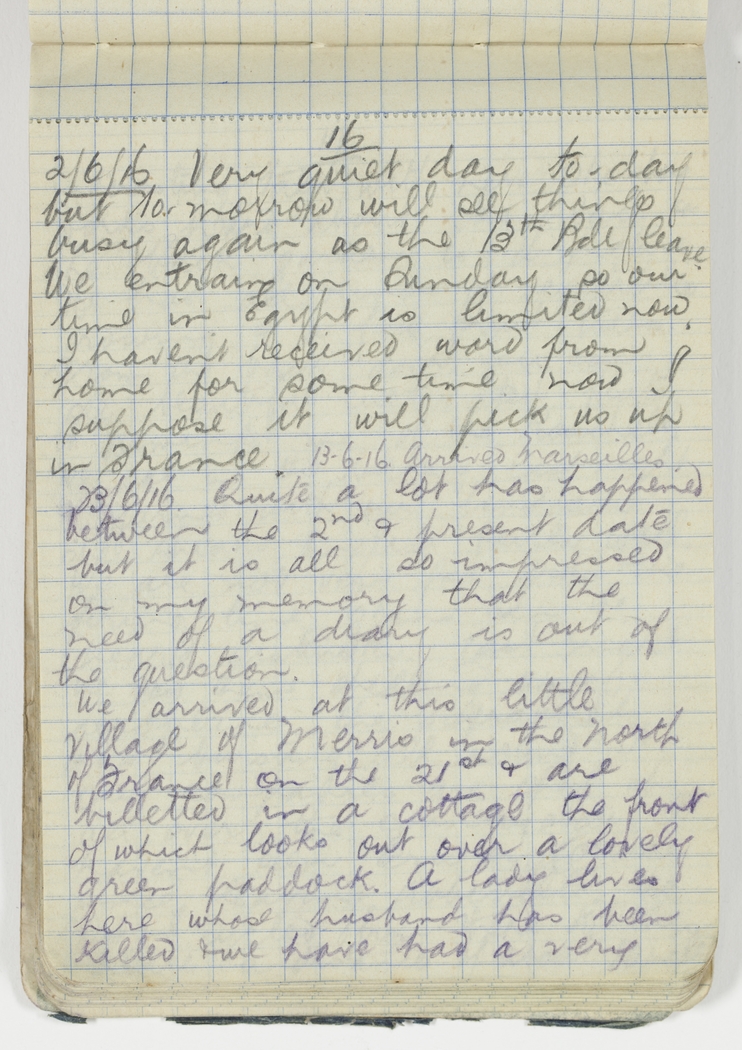 16
2/6/16 Very quiet day to-day
but to-morrow will see things
busy again as the 13th Bde leave
We entrain on Sunday so our
time in Egypt is limited now
I havent received word from
home for some time now I
suppose it will pick us up
in France. 13-6-16 Arrived Marseilles
23/6/16 Quite a lot has happened
between the 2nd & present date
but it is all so impressed
on my memory that the
need of a diary is out of
the question.
We arrived at this little
village of Merris in the North
of France on the 21st & are
billetted in a cottage the front
of which looks out over a lovely
green paddock. A lady lives
here whose husband has been
killed & we have had a very